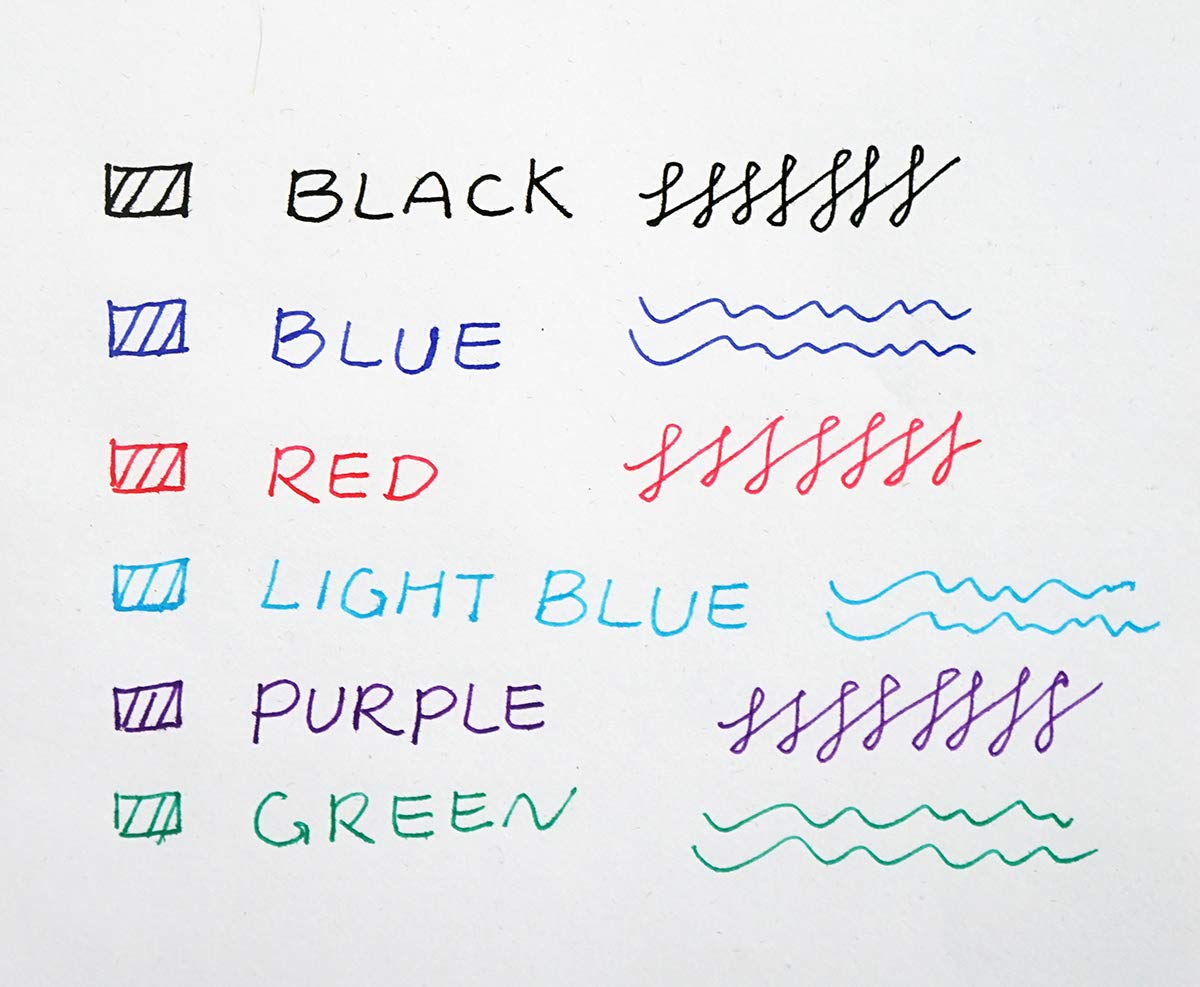 BLACK
BLUE
RED
LIGHT BLUE
PURPLE
GREEN